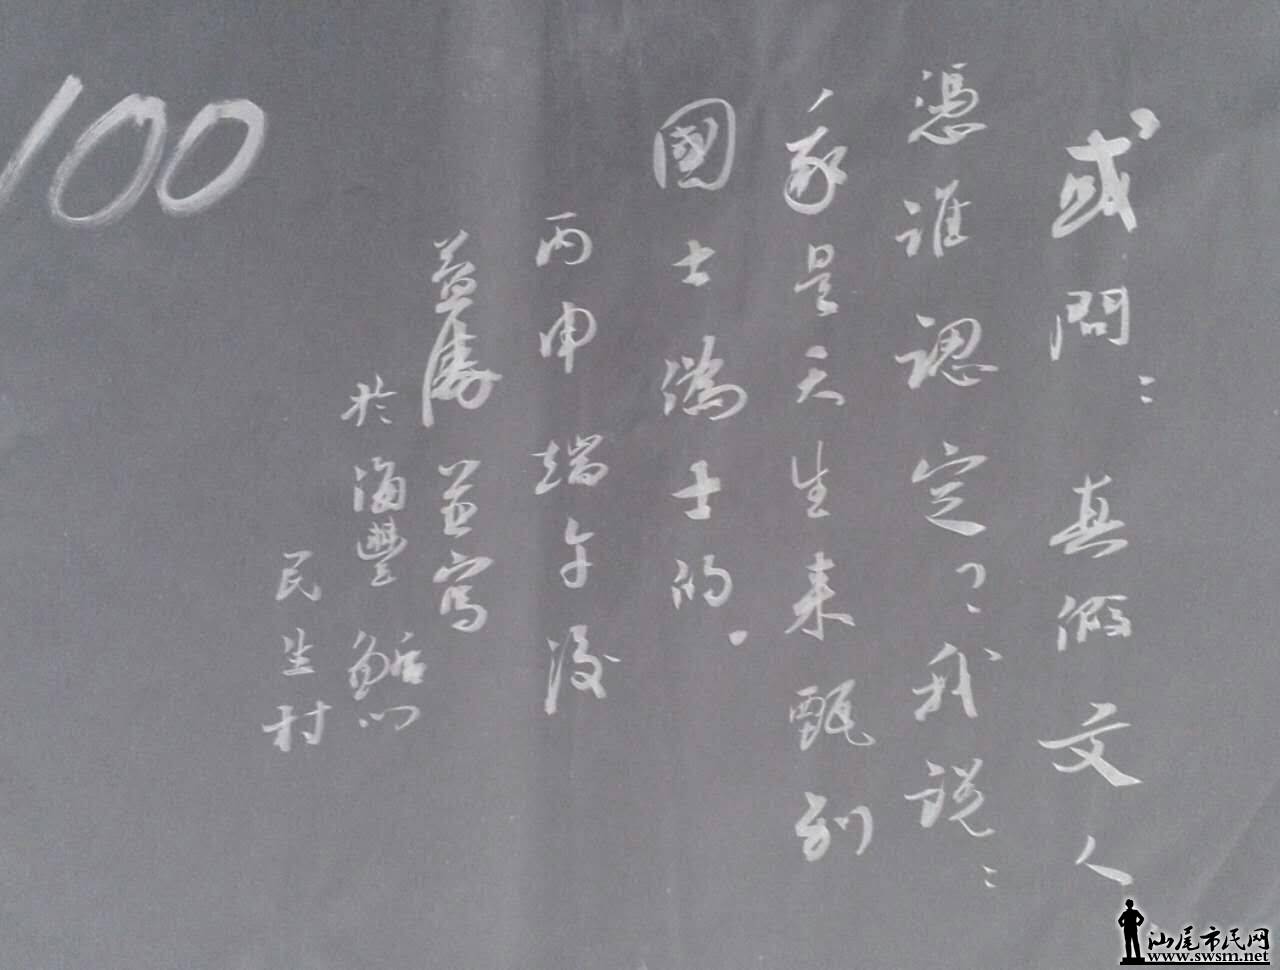 或問：真假文人
憑誰認定？我說：
我是天生来甄别
國士偽士的．
丙申端午後
益勝並寫
於海豐鮜门
民生村
100
汕尾市民网
www.swsm.net